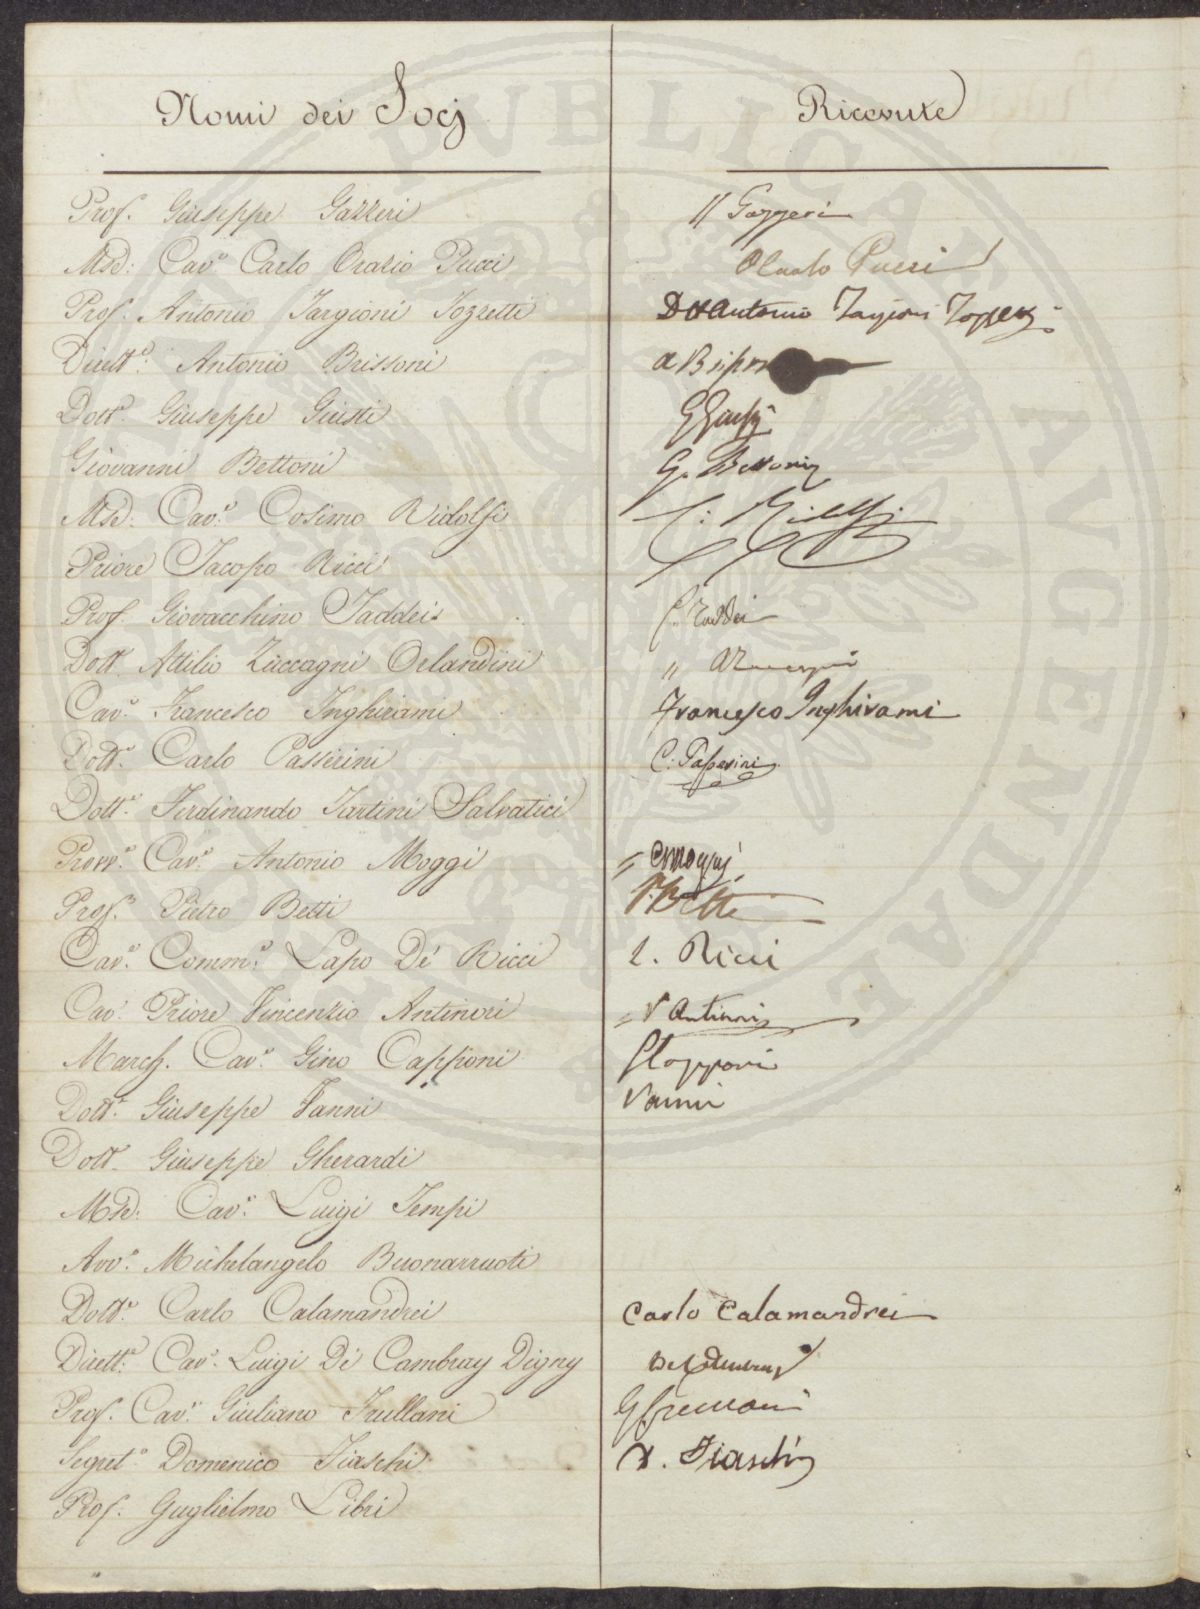 Nomi dei Socj
Ricevute
Prof. Giuseppe Gazzeri
Gazzeri
Msē: Cavᵉ Carlo Orazio Pucci
Pucci
Prof. Antonio Targioni Tozzetti
Antonio Targioni Tozzetti
Dirett.ᵉ Antonio Brissoni
Dott. Giuseppe Giusti
Giovanni Bettoni
G. Bettoni
Msē: Cav.ᵉ Cosimo Ridolfi
C: Ridolfi
Priore Jacopo Ricci
Prof. Giovacchino Taddei
G. Taddei
Dott. Attilio Zuccagni Orlandini
Cav.ᵉ Francesco Inghirami
Francesco Inghirami
Dott.ᵉ Carlo Passerini
C: Passerini
Dott.ᵉ Ferdinando Tartini Salvatici
Provv.ᵉ Cav.ᵉ Antonio Moggi
Prof. Pietro Betti
P. Betti
Cav.ᵉ Comm.ᵉ Lapo De' Ricci
L. Ricci
Cav. Priore Vincenzio Antinori
V Antinori
March. Cav.ᵉ Gino Capponi
G Capponi
Dott.ᵉ Giuseppe Vanni
Vanni
Dott. Giuseppe Gherardi
Msē: Cav.ᵉ Luigi Tempi
Avv.ᵉ Michelangelo Buonarruoti
Dott.ᵉ Carlo Calamandrei
Carlo Calamandrei
Dirett.ᵉ Cav.ᵉ Luigi De' Cambray Digny
Prof. Cav.ᵉ Giuliano Frullani
Segret.ᵒ Domenico Fiaschi
D. Fiaschi
Prof. Guglielmo Libri